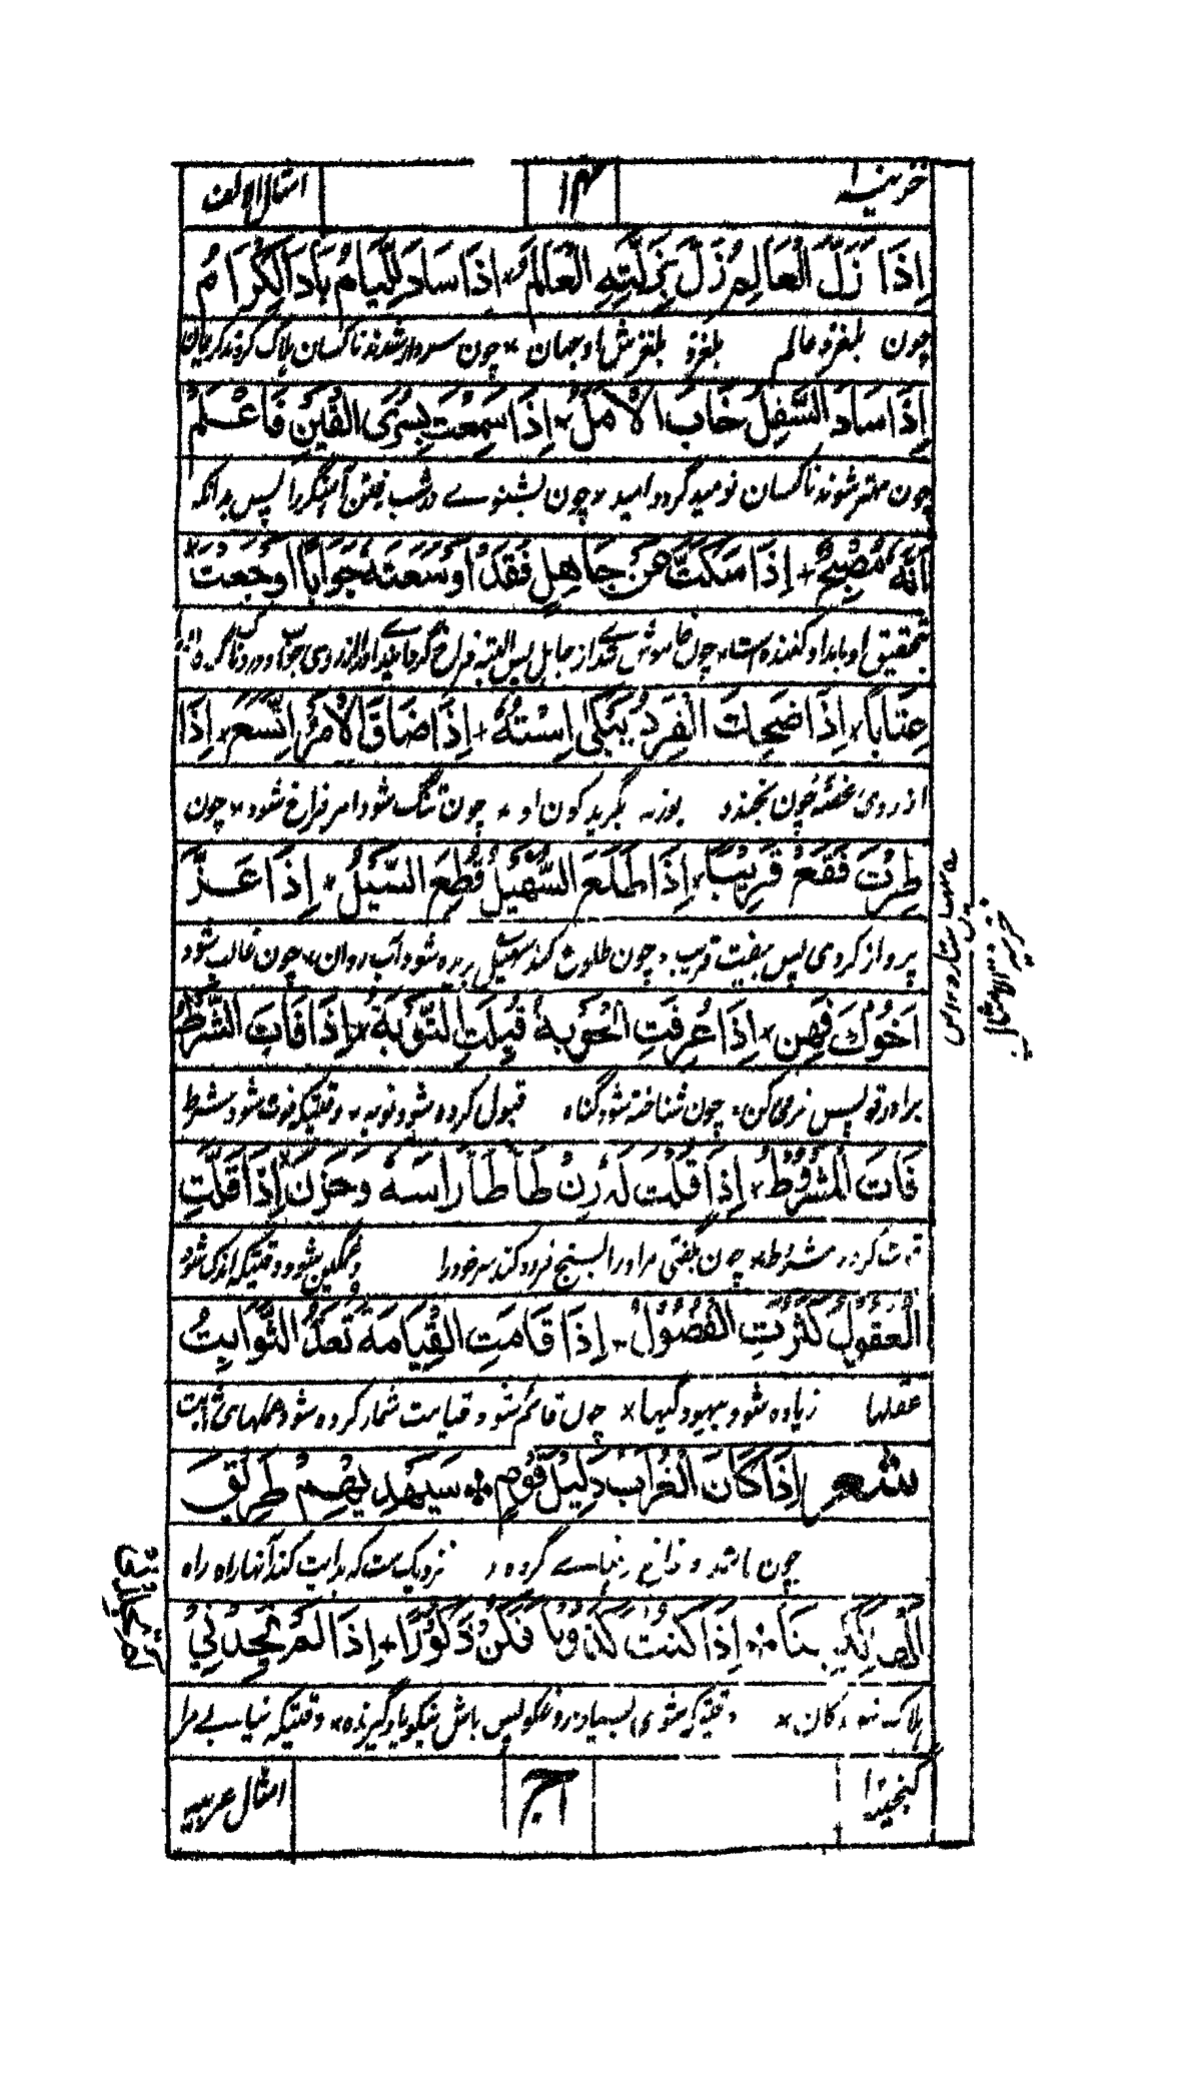 خزینهٔ ۱۴ امثال الالف
إِذَا زَلَّ الْعَالِمُ زَلَّ بِزَلَّتِهِ الْعَالَمُ * إِذَا سَادَ اللِّيَامُ بَادَ الْكِرَامُ
چون بلغزد عالم بلغزد بلغزش او جهان * چون سردار شدند ناکسان ہلاک گردند کریمان
إِذَا سَادَ السَّفِلُ خَابَ الْأَمَلُ * إِذَا سَمِعْتَ بِسُرَى الْقَيْنِ فَاعْلَمْ
چون مہتر شوند ناکسان نومید گردد امید * چون بشنوے در شب رفتن آہنگر را پس بدانکہ
أَنَّهُ مُصْبِحٌ + إِذَا سَكَتَّ عَنْ جَاهِلٍ فَقَدْ أَوْسَعْتَهُ جَوَابًا أَوْجَعْتَهُ
بتحقیق او بامداد کنندہ است * چون خاموش شدے از جاہل پس البتہ فراخ کردے او را از روی جواب و دردناک کردہ
عِتَابًا * إِذَا ضَحِكَتَ الْقِرْدُ يَبْكَى إِسْتُهُ + إِذَا ضَاقَ الْأَمْرُ اِتَّسَعَ * إِذَا
از روی غصّہ چون بخندد بوزنہ بگرید کون او * چون تنگ شود امر فراخ شود * چون
طِرْتَ فَقَعْ قَرِيْبًا * إِذَا طَلَعَ السُّهَيْلُ قُطِعَ السَّيْلُ * إِذَا عَزَّ
پرواز کردی پس بیفت قریب * چون طلوع کند سہیل بریدہ شود آب روان * چون غالب شود
أَخُوْكَ فَهِنْ * إِذَا عُرِفَتِ الْحَوْبَةُ قُبِلَتِ التَّوْبَةُ * إِذَا فَاتَ الشَّرْطُ
برادر تو پس نرمی کن * چون شناختہ شود گناہ قبول کردہ شود توبہ * وقتیکہ فوت شود شرط
فَاتَ الْمَشْرُوْطُ * إِذَا قُلْتَ لَهُ زِنْ طَأْطَأَ رَاسَهُ وَحَزَنَ * إِذَا قَلَّتِ
مشروط * چون بگفتی مر او را بسنج فرود کند سر خود را و غمگین شود * وقتیکہ اندک شود
الْعُقُوْلُ كَثُرَتِ الْفُضُوْلُ * إِذَا قَامَتِ الْقِيَامَةُ تُعَدُّ الثَّوَابِتُ
عقلہا زیادہ شود بیہودگیہا * چون قائم شود قیامت شمار کردہ شود عملہای ثابت
شعر إِذَا كَانَ الْغُرَابُ دَلِيْلَ قَوْمٍ * سَيَهْدِيْهِمْ طَرِيْقَ
چون باشد زاغ رہنماے گروہ نزدیک ست کہ ہدایت کند آنہا را راہ
الْهَالِكِيْنَا * إِذَا كُنْتَ كَذُوْبًا فَكُنْ ذَكُوْرًا + إِذَا لَمْ تَجِدْنِيْ
ہلاک شوندگان * وقتیکہ شوی بسیار دروغگو پس باش نیکو یاد گیرندہ * وقتیکہ نیابے مرا
گنجینۂ امثال عربیہ
خزینة الامثال